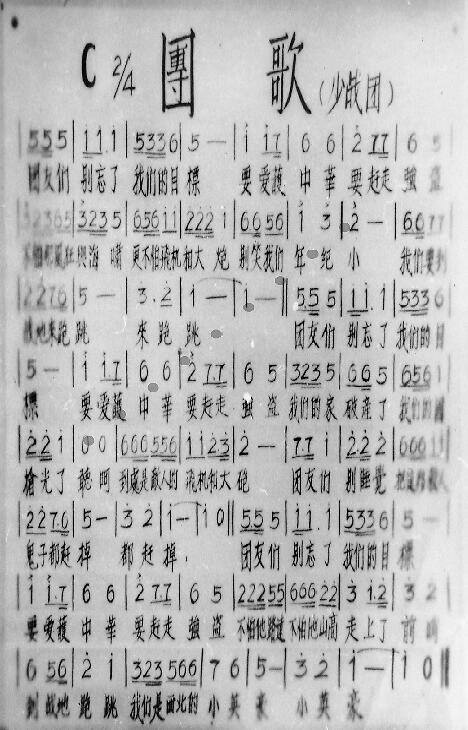 C 2/4 團 歌 (少战团)
5 5 5 | i i. i | 5 3 3 6 | 5 — | i i 7 | 6 6 | 2 7 7 | 6 5
团友们 别忘了 我们的目標 要爱護 中華 要赶走 強盗
3 2 3 5 | 6 5 6 i i | 2 2 2 i | 6 6 5 6 | i 3 | 2 — | 6 6 7 7
海嘯 更不怕飛机和大炮 别笑我们 年纪小 我们要到
2 2 7 6 | 5 — | 3. 2 | i — | i — || 5 5 5 | i i. i | 5 3 3 6
战地来跑 跳 来跑 跳 团友们 别忘了 我们的目
5 — | i i 7 | 6 6 | 2 7 7 | 6 5 | 3 2 3 5 | 6 6 5 | 6 5 6 i
標 要爱護 中華 要赶走 強盗 我们的家 破産了 我们的國
2 2 i | 0 0 | 6 6 6 5 5 6 | i i 2 3 | 2 — | 7 7 i | 2 2 2 | 6 6 6 i i
搶光了 聽呵 到處是敵人的 飛机和大 砲 团友们 别睡覺
2 2 7 6 | 5 — | 3 2 | i — | i 0 || 5 5 5 | i i. i | 5 3 3 6 | 5 —
鬼子都赶 掉 都赶掉. 团友们 别忘了 我们的目 標
i i. 7 | 6 6 | 2 7 7 | 6 5 | 2 2 2 5 5 | 6 6 6 2 2 | 3 i. 2 | 3 2
要爱護 中華 要赶走 強盗 不怕他路遠 不怕他山高 走上了 前哨
6 5 6 | 2 i | 3 2 3 5 6 6 | 7 6 | 5 — | 3 2 | i — | i 0 ||
到战地 跑跳 我们是西北的 小英豪 小英豪